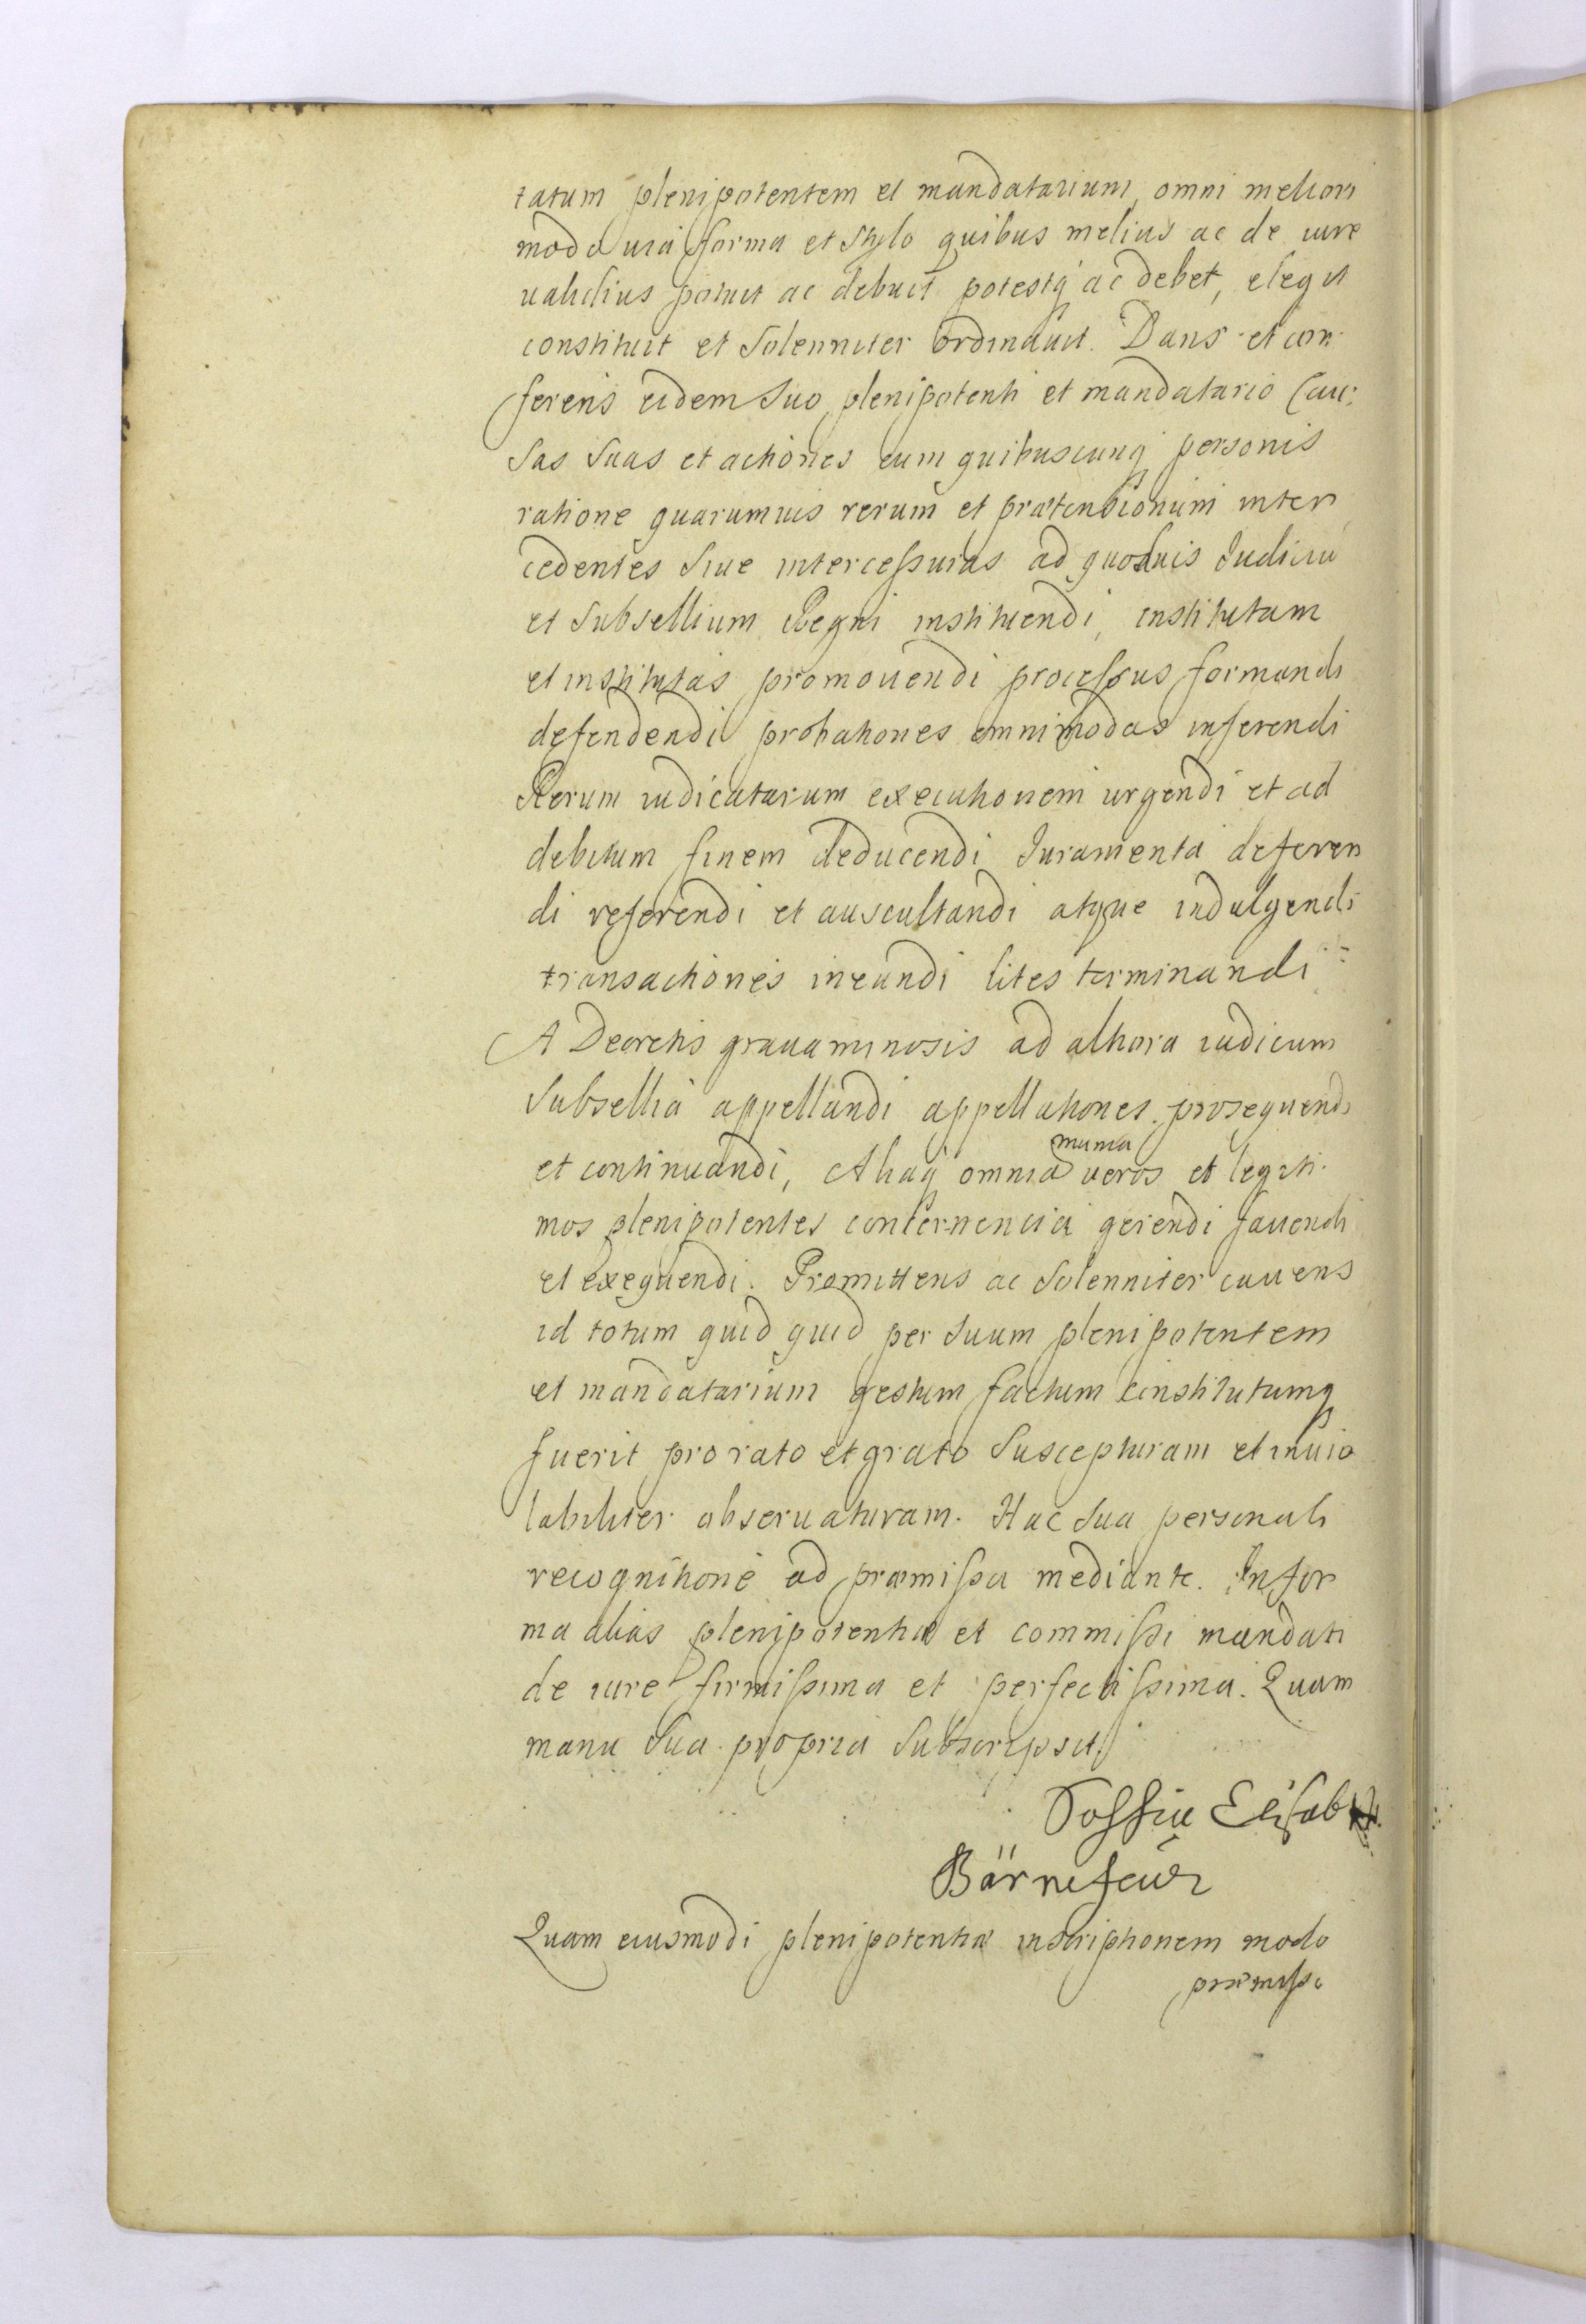 tatum plenipotentem et mandatarium, omni meliori
modo uia forma et Stylo quibus melius ac de iure
ualidius potuit ac debuit potestq ac debet, elegit
constituit et Solenniter ordinauit. Dans et con
ferens eidem Suo plenipotenti et mandatario Cau:
Sas Suas et actiones cum quibuscunq personis
ratione quarumuis rerum et prætensionum inter
cedentes Siue intercessuras ad quoduis Iudiciũ
et Subsellium Regni instituendi, institutam
et institutas promouendi processus formandi
defendendi probationes omnimodas inferendi
Rerum iudicatarum executionem urgendi et ad
debitum finem deducendi Iuramenta deferen
di referendi et auscultandi atque indulgendi
transactiones ineundi lites terminandi
A Decretis grauaminosis ad altiora iudicum
Subsellia appellandi appellationes prosequendi
et continuandi, Aliaq omnia munia ueros et legiti
mos plenipotentes concernencia gerendi fauendi
et exequendi. Promittens ac Solenniter cauens
id totum quid quid per Suum plenipotentem
et mandatarium gestum factum institutumq
fuerit pro rato et grato Suscepturam et inuio
labiliter obseruaturam. Hac Sua personali
recognitione ad præmissa mediante. In for
ma alias plenipotentiæ et commissi mandati
de iure firmissima et perfectissima. Quam
manu Sua propria Subscripsit
Soffia Elisab
Bärnefeur
Quam eiusmodi plenipotentiæ inscriptionem modo
præmisso